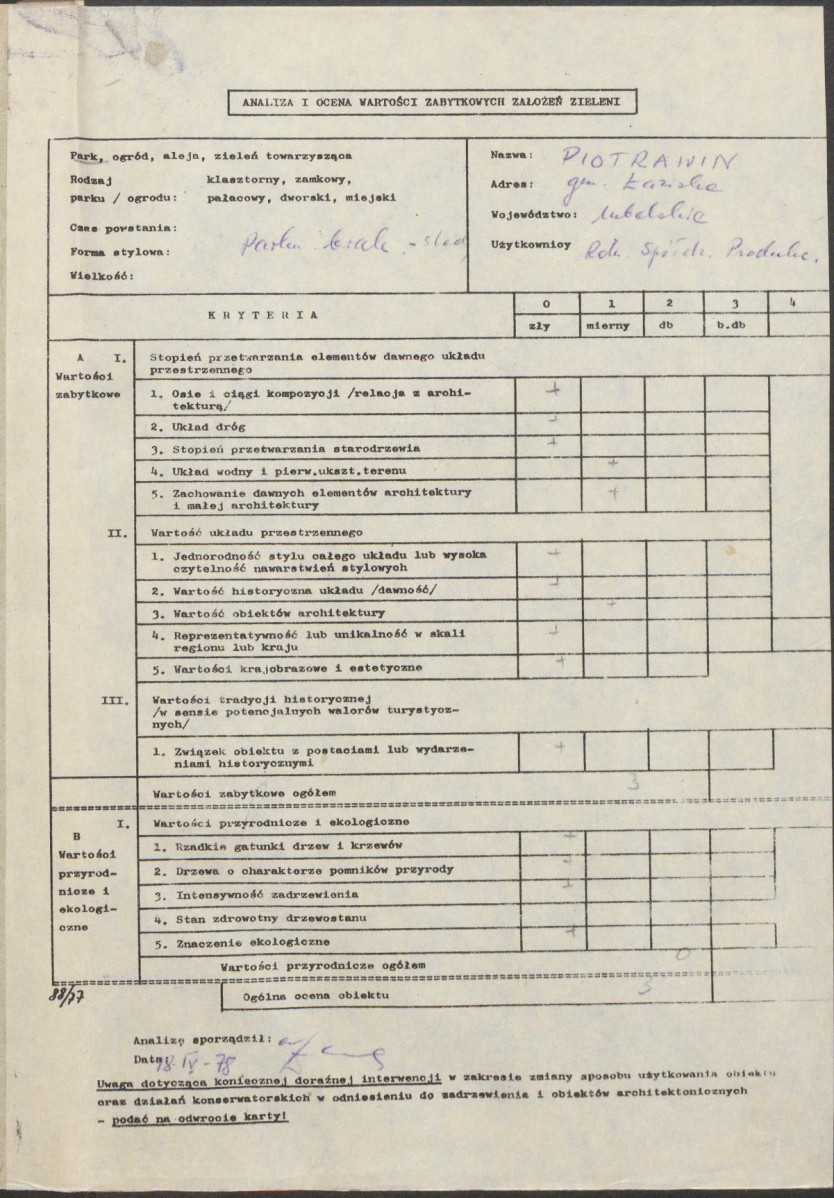 ANALIZA I OCENA WARTOŚCI ZABYTKOWYCH ZAŁOŻEŃ ZIELENI
Park, ogród, aleja, zieleń towarzysząca
Rodzaj klasztorny, zamkowy,
parku / ogrodu: pałacowy, dworski, miejski
Czas powstania:
Forma stylowa: Parku brak - ślad
Wielkość:
Nazwa: PIOTRAWIN
Adres: gm. Łaziska
Województwo: lubelskie
Użytkownicy Roln. Spółdz. Produkc.
KRYTERIA
0 1 2 3 4
zły mierny db b.db
A I. Stopień przetwarzania elementów dawnego układu
Wartości przestrzennego
zabytkowe 1. Osie i ciągi kompozycji /relacja z archi-
tekturą/ +
2. Układ dróg
3. Stopień przetwarzania starodrzewia +
4. Układ wodny i pierw.ukszt.terenu +
5. Zachowanie dawnych elementów architektury +
i małej architektury
II. Wartość układu przestrzennego
1. Jednorodność stylu całego układu lub wysoka +
czytelność nawarstwień stylowych
2. Wartość historyczna układu /dawność/
3. Wartość obiektów architektury +
4. Reprezentatywność lub unikalność w skali
regionu lub kraju
5. Wartości krajobrazowe i estetyczne +
III. Wartości tradycji historycznej
/w sensie potencjalnych walorów turystycz-
nych/
1. Związek obiektu z postaciami lub wydarze- +
niami historycznymi
Wartości zabytkowe ogółem 3
I. Wartości przyrodnicze i ekologiczne
B
Wartości
przyrod-
nicze i
ekologi-
czne
1. Rzadkie gatunki drzew i krzewów +
2. Drzewa o charakterze pomników przyrody +
3. Intensywność zadrzewienia +
4. Stan zdrowotny drzewostanu
5. Znaczenie ekologiczne +
Wartości przyrodnicze ogółem 0
88/77
Ogólna ocena obiektu 3
Analizę sporządził:
Data: 18.IX-78
Uwaga dotycząca koniecznej doraźnej interwencji w zakresie zmiany sposobu użytkowania obiektu
oraz działań konserwatorskich w odniesieniu do zadrzewienia i obiektów architektonicznych
- podać na odwrocie karty!